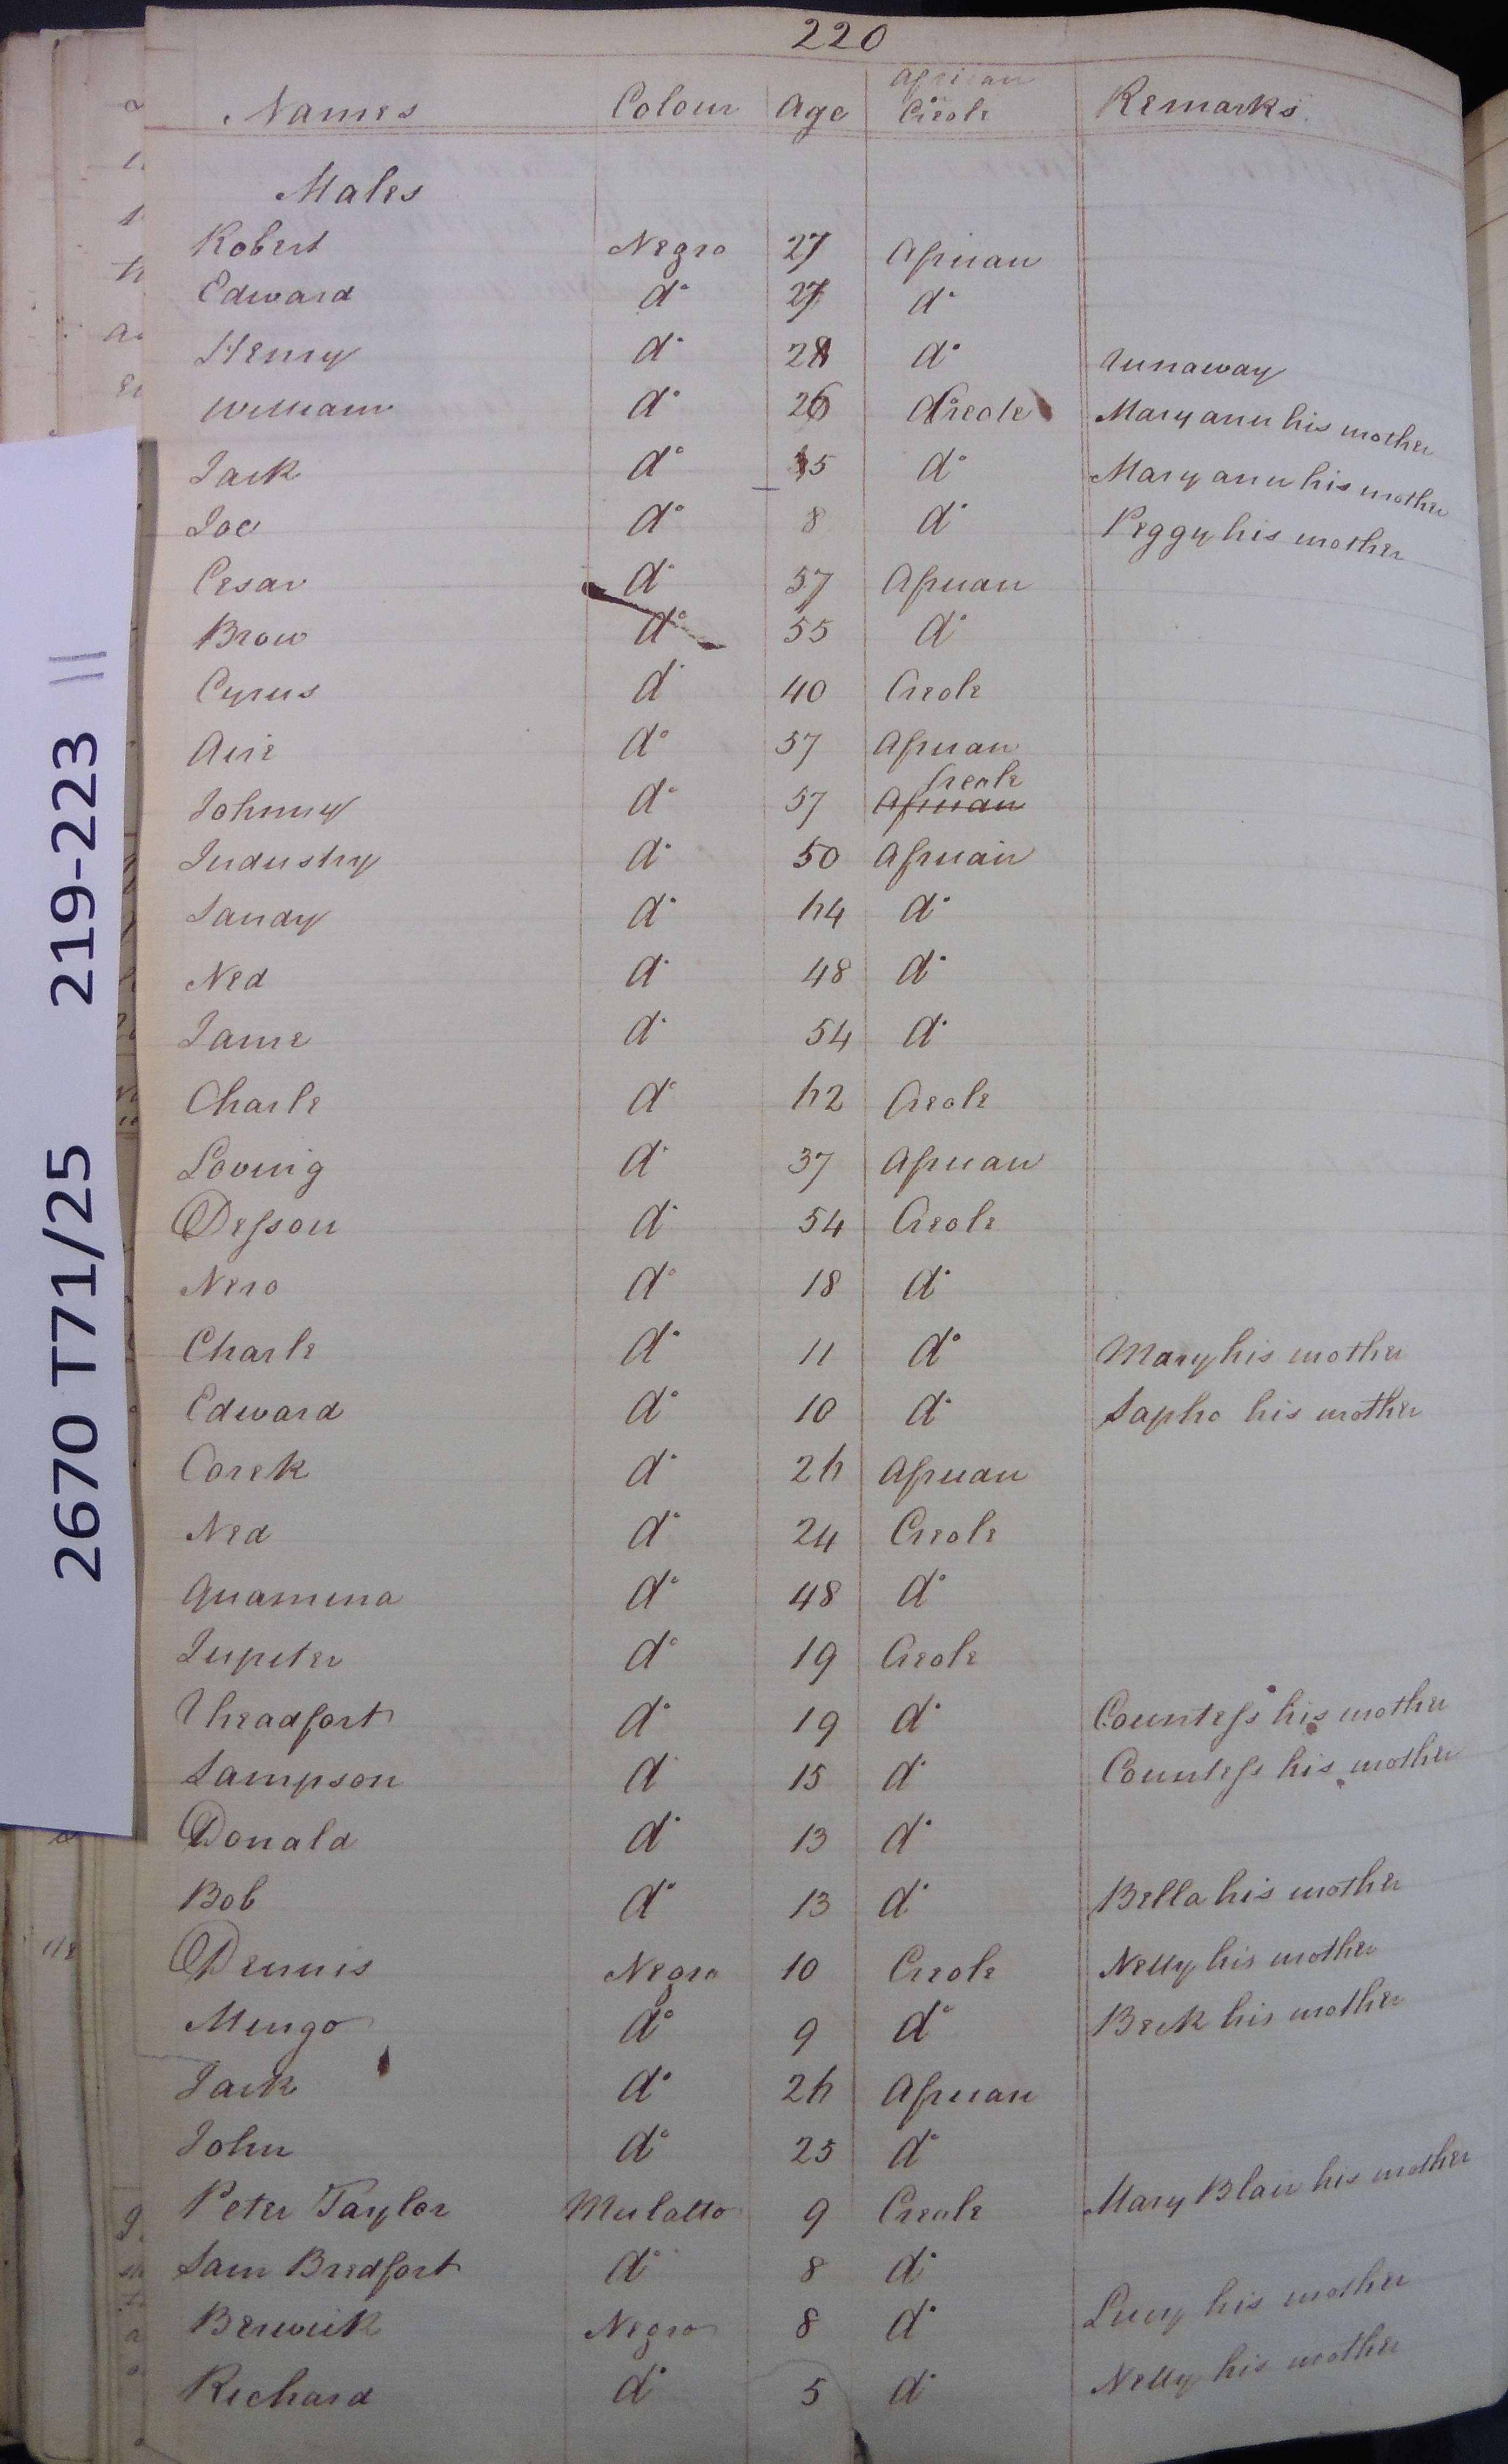 220
Names Colour Age African or Creole Remarks
Males
Robert Negro 27 African
Edward do 27 do
Henry do 28 do runaway
William do 26 Creole Mary ann his mother
Jack do 15 do Mary ann his mother
Joe do 8 do Peggy his mother
Cesar do 57 African
Brow do 55 do
Cyrus do 40 Creole
do 57 African
Johnny do 57 African Creole
Industry do 50 African
Sandy do 44 do
Ned do 48 do
Jame do 54 do
Charle do 42 Creole
Loving do 37 African
Desson do 54 Creole
Nero do 18 do
Charle do 11 do Mary his mother
Edward do 10 do Sapho his mother
Corek do 24 African
Ned do 24 Creole
Quamina do 48 do
Jupeter do 19 Creole
Theadfort do 19 do Countess his mother
Sampson do 15 do Countess his mother
Donald do 13 do
Bob do 13 do Bella his mother
Dennis Negro 10 Creole Nelly his mother
Mingo do 9 do Beck his mother
Jack do 24 African
John do 25 do
Peter Taylor Mulatto 9 Creole Mary Blair his mother
Sam Bredfort do 8 do
Berwick Negro 8 do Lucy his mother
Richard do 5 do Nelly his mother
2670 T71/25 219-223 ||